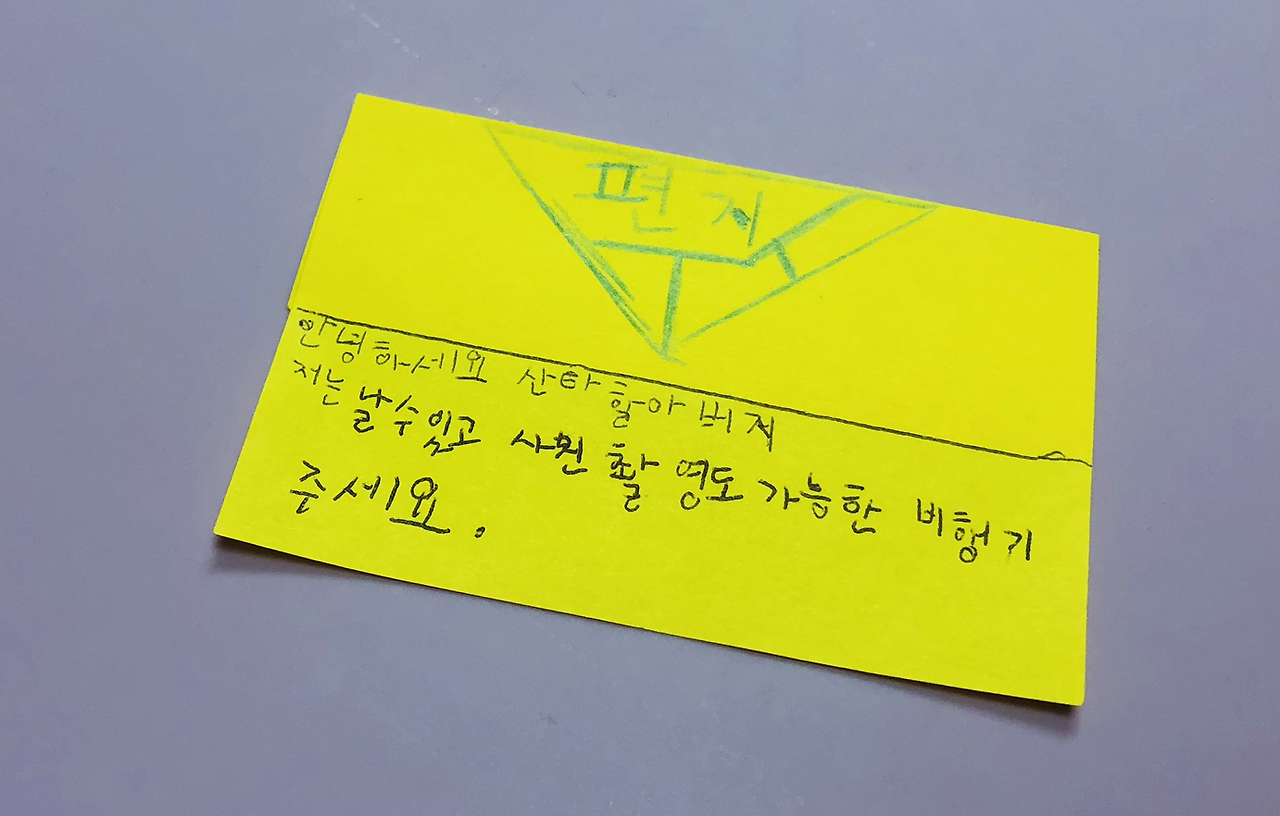 편지
안녕하세요 산타 할아버지
저는 날수있고 사진 촬영도 가능한 비행기
주세요.